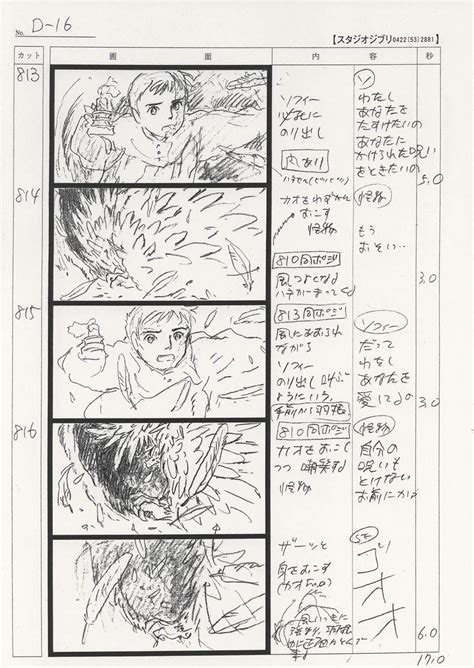 No. D-16
【スタジオジブリ0422(53)2881】
カット 画面 内容 秒
813
ソフィー
必死に
のり出し
ソ
わたし
あなたを
たすけたいの
あなたに
かけられた呪い
をときたいの
5.0
814
カオをわずかに
おこす
怪物
怪物
もう
おそい…
810同ポジ
3.0
815
813同ポジ
風にあおられ
ながら
ソフィー
のり出し叫ぶ
ようにいう。
手前から羽根
ソフィー
だって
わたし
あなたを
愛してるの
3.0
816
810同ポジ
カオをおこし
つつ 嘲笑する
怪物
怪物
自分の
呪いも
とけない
お前にか
ザーッと
身をおこす
SE
ゴオオ
6.0
17.0